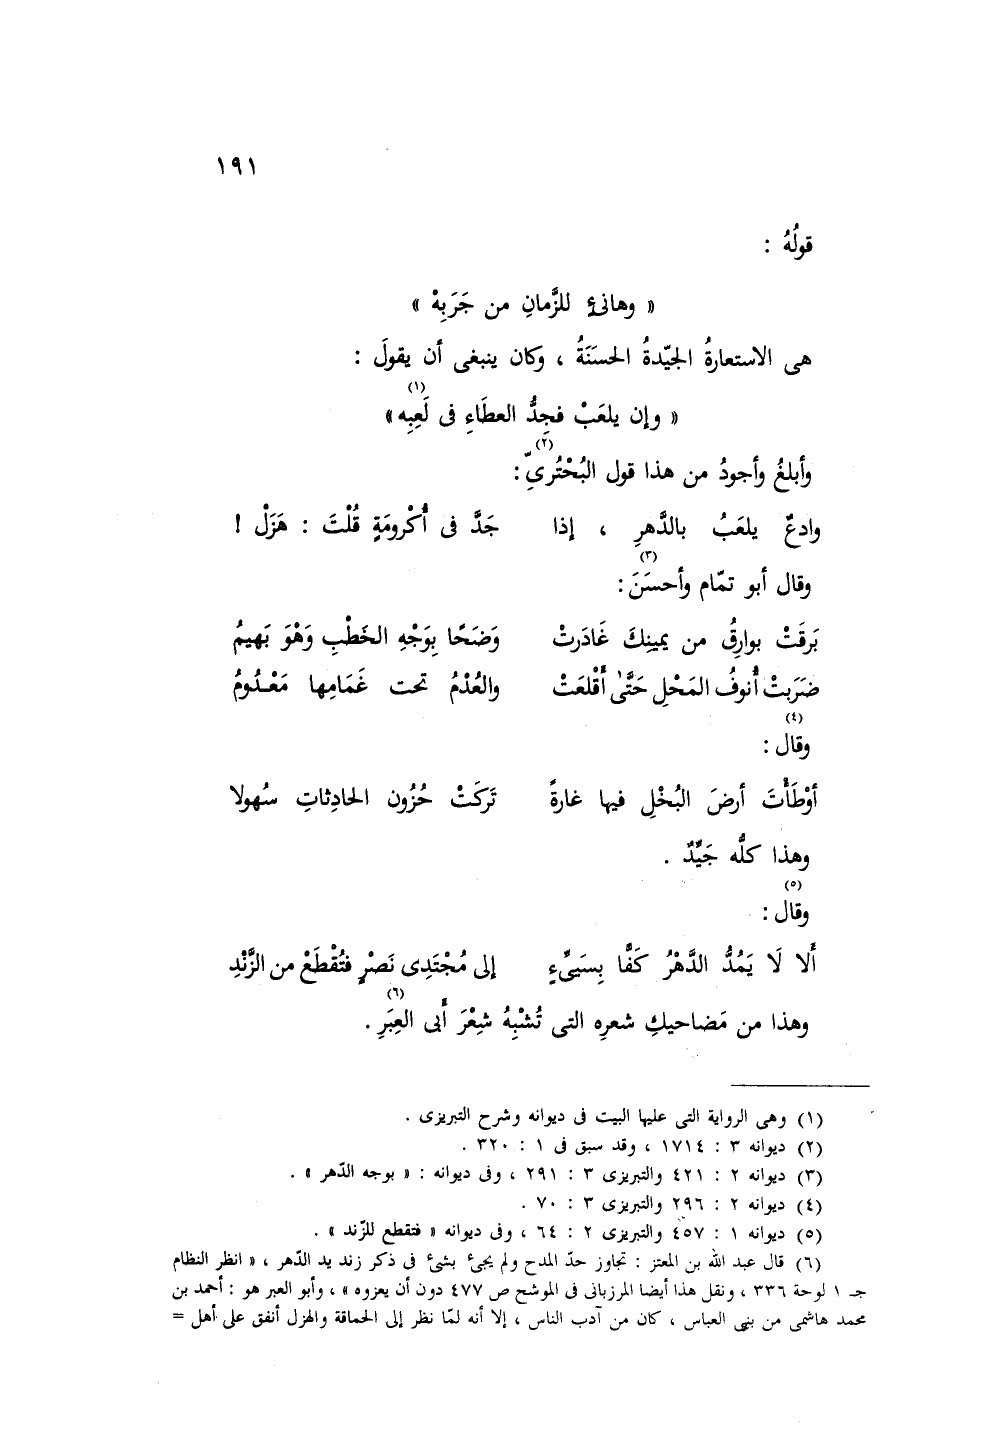 ١٩١
قولُهُ :
« وهانئٍ للزَّمانِ من جَرَبِهْ »
هى الاستعارةُ الجيّدةُ الحسَنَةُ ، وكان ينبغى أن يقولَ :
« وإن يلعَبْ فجِدُّ العطَاءِ فى لَعِبِه » (١)
وأبلغُ وأجودُ من هذا قول البُحْتُرىِّ (٢) :
وادعٌ يلعَبُ بالدَّهرِ ، إذا جَدَّ فى أُكْرومَةٍ قُلْتَ : هَزَلْ !
وقال أبو تمّام وأحسَنَ (٣) :
بَرقَتْ بوارِقُ من يمينِكَ غَادَرتْ وَضَحًا بِوَجْهِ الخَطْبِ وَهْوَ بَهيمُ
ضَرَبتْ أُنوفُ المَحْلِ حَتَّى أَقْلعَتْ والعُدْمُ تحت غَمَامِها مَعْدُومُ
وقال (٤) :
أوْطَأْتَ أرضَ البُخْلِ فيها غارةً تَركَتْ حُزُون الحادِثاتِ سُهولا
وهذا كلُّه جَيِّدٌ .
وقال (٥) :
أَلا لَا يَمُدُّ الدَّهْرُ كَفًّا بِسَيِّءٍ إلى مُجْتَدِى نَصْرٍ فتُقْطَعْ من الزَّنْدِ
وهذا من مَضاحيكِ شعرِه التى تُشْبِهُ شِعْرَ أَبى العِبَرِ (٦) .
(١) وهى الرواية التى عليها البيت فى ديوانه وشرح التبريزى .
(٢) ديوانه ٣ : ١٧١٤ ، وقد سبق فى ١ : ٣٢٠ .
(٣) ديوانه ٢ : ٤٢١ والتبريزى ٣ : ٢٩١ ، وفى ديوانه : « بوجه الدّهر » .
(٤) ديوانه ٢ : ٢٩٦ والتبريزى ٣ : ٧٠ .
(٥) ديوانه ١ : ٤٥٧ والتبريزى ٢ : ٦٤ ، وفى ديوانه « فتقطع للزّند » .
(٦) قال عبد الله بن المعتز : تجاوز حدّ المدح ولم يجئ بشئ فى ذكر زند يد الدّهر ، « انظر النظام
جـ ١ لوحة ٣٣٦ ، ونقل هذا أيضا المرزبانى فى الموشح ص ٤٧٧ دون أن يعزوه » ، وأبو العبر هو : أحمد بن
محمد هاشمى من بنى العباس ، كان من آدب الناس ، إلا أنه لمّا نظر إلى الحماقة والهزل أنفق على أهل =